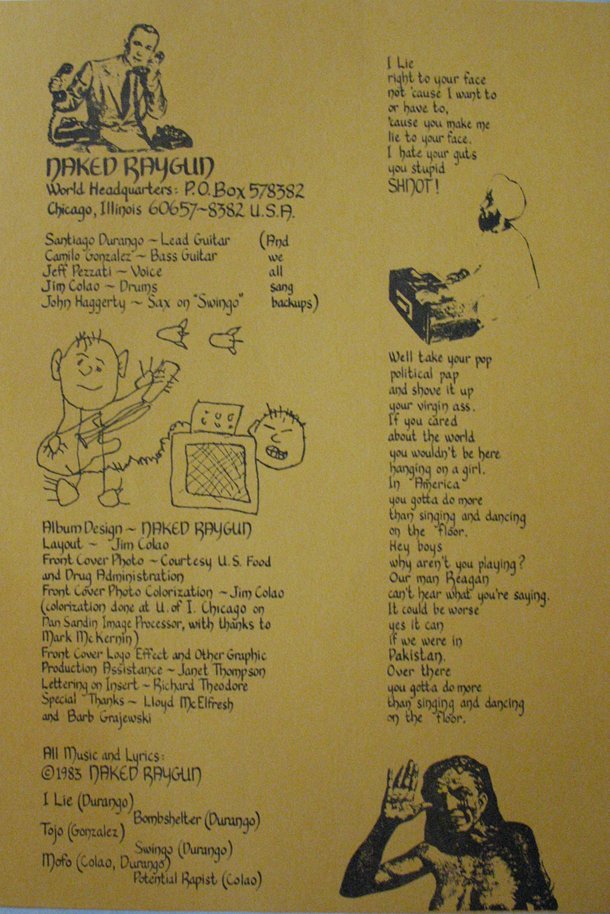 NAKED RAYGUN
World Headquarters: P.O. Box 578382
Chicago, Illinois 60657~8382 U.S.A.
Santiago Durango ~ Lead Guitar (And
Camilo "Gonzalez" ~ Bass Guitar we
Jeff Pezzati ~ Voice all
Jim Colao ~ Drums sang
John Haggerty ~ Sax on "Swingo" backups)
Album Design ~ NAKED RAYGUN
Layout ~ Jim Colao
Front Cover Photo ~ Courtesy U.S. Food
and Drug Administration
Front Cover Photo Colorization ~ Jim Colao
(colorization done at U. of I. Chicago on
Dan Sandin Image Processor, with thanks to
Mark McKernin)
Front Cover Logo Effect and Other Graphic
Production Assistance ~ Janet Thompson
Lettering on Insert ~ Richard Theodore
Special Thanks ~ Lloyd McElfresh
and Barb Grajewski
All Music and Lyrics:
©1983 NAKED RAYGUN
I Lie (Durango)
Bombshelter (Durango)
Tojo (Gonzalez)
Swingo (Durango)
Mofo (Colao, Durango)
Potential Rapist (Colao)
I Lie
right to your face
not 'cause I want to
or have to,
'cause you make me
lie to your face.
I hate your guts
you stupid
SHNOT!
Well take your pop
political pap
and shove it up
your virgin ass.
If you cared
about the world
you wouldn't be here
hanging on a girl.
In America
you gotta do more
than singing and dancing
on the floor.
Hey boys
why aren't you playing?
Our man Reagan
can't hear what you're saying.
It could be worse
yes it can
if we were in
Pakistan.
Over there
you gotta do more
than singing and dancing
on the floor.